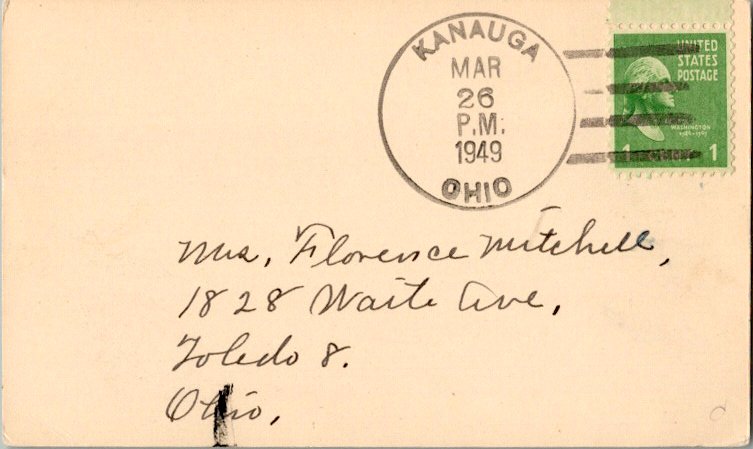 KANAUGA
MAR
26
P.M.
1949
OHIO
UNITED
STATES
POSTAGE
WASHINGTON
1
1
Mrs. Florence Mitchell,
1828 Waite Ave,
Toledo 8.
Ohio,